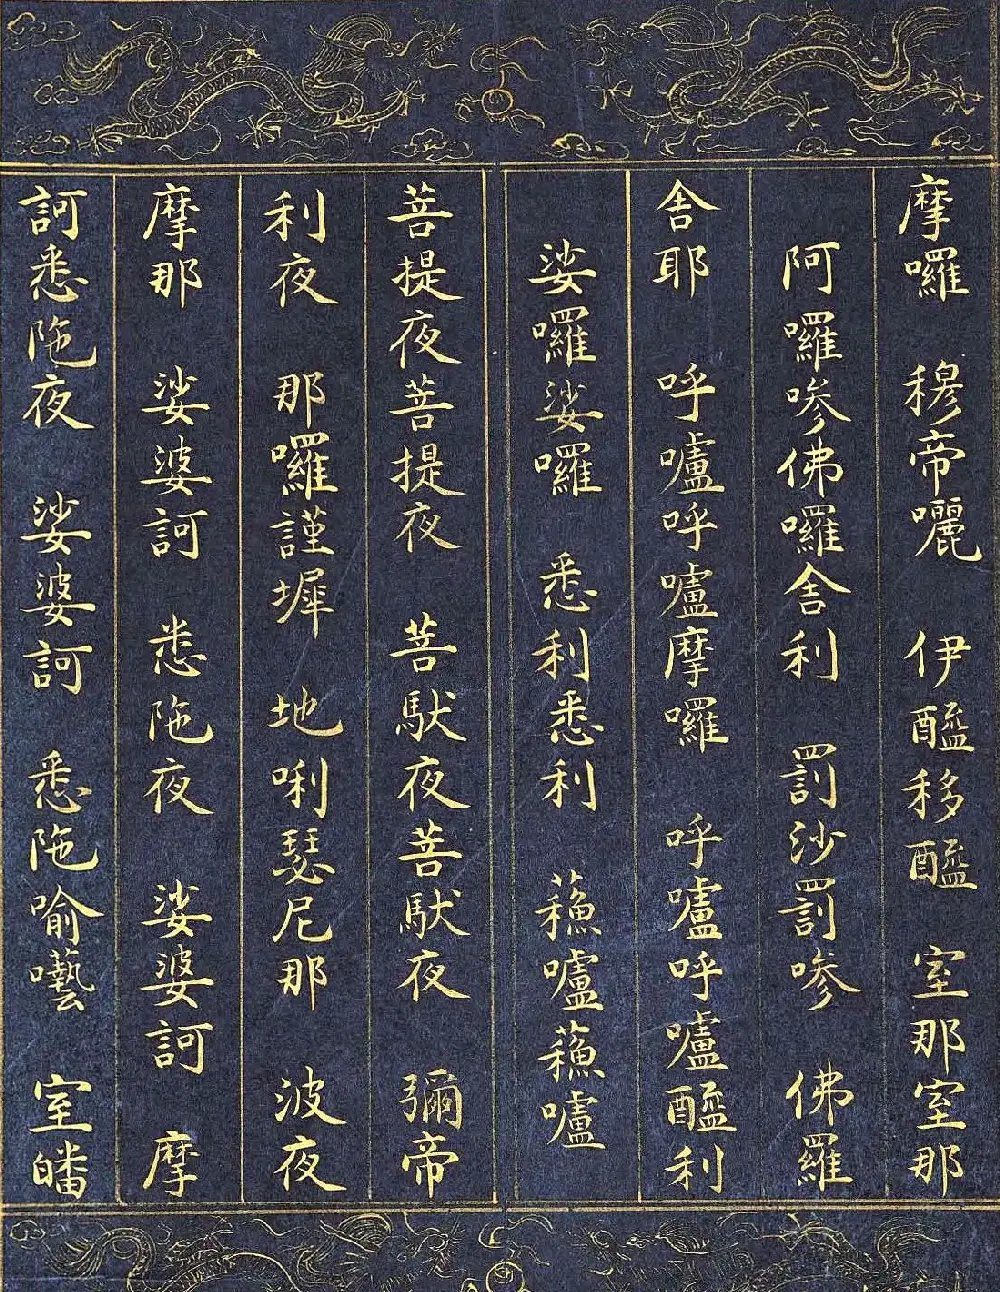 摩囉 穆帝㘑 伊醯移醯 室那室那
阿囉嘇佛囉舍利 罰沙罰嘇 佛羅
舍耶 呼嚧呼嚧摩囉 呼嚧呼嚧醯利
娑囉娑囉 悉利悉利 蘓嚧蘓嚧
菩提夜菩提夜 菩馱夜菩馱夜 彌帝
利夜 那囉謹墀 地唎瑟尼那 波夜
摩那 娑婆訶 悉陁夜 娑婆訶 摩
訶悉陁夜 娑婆訶 悉陁喻囈 室皤